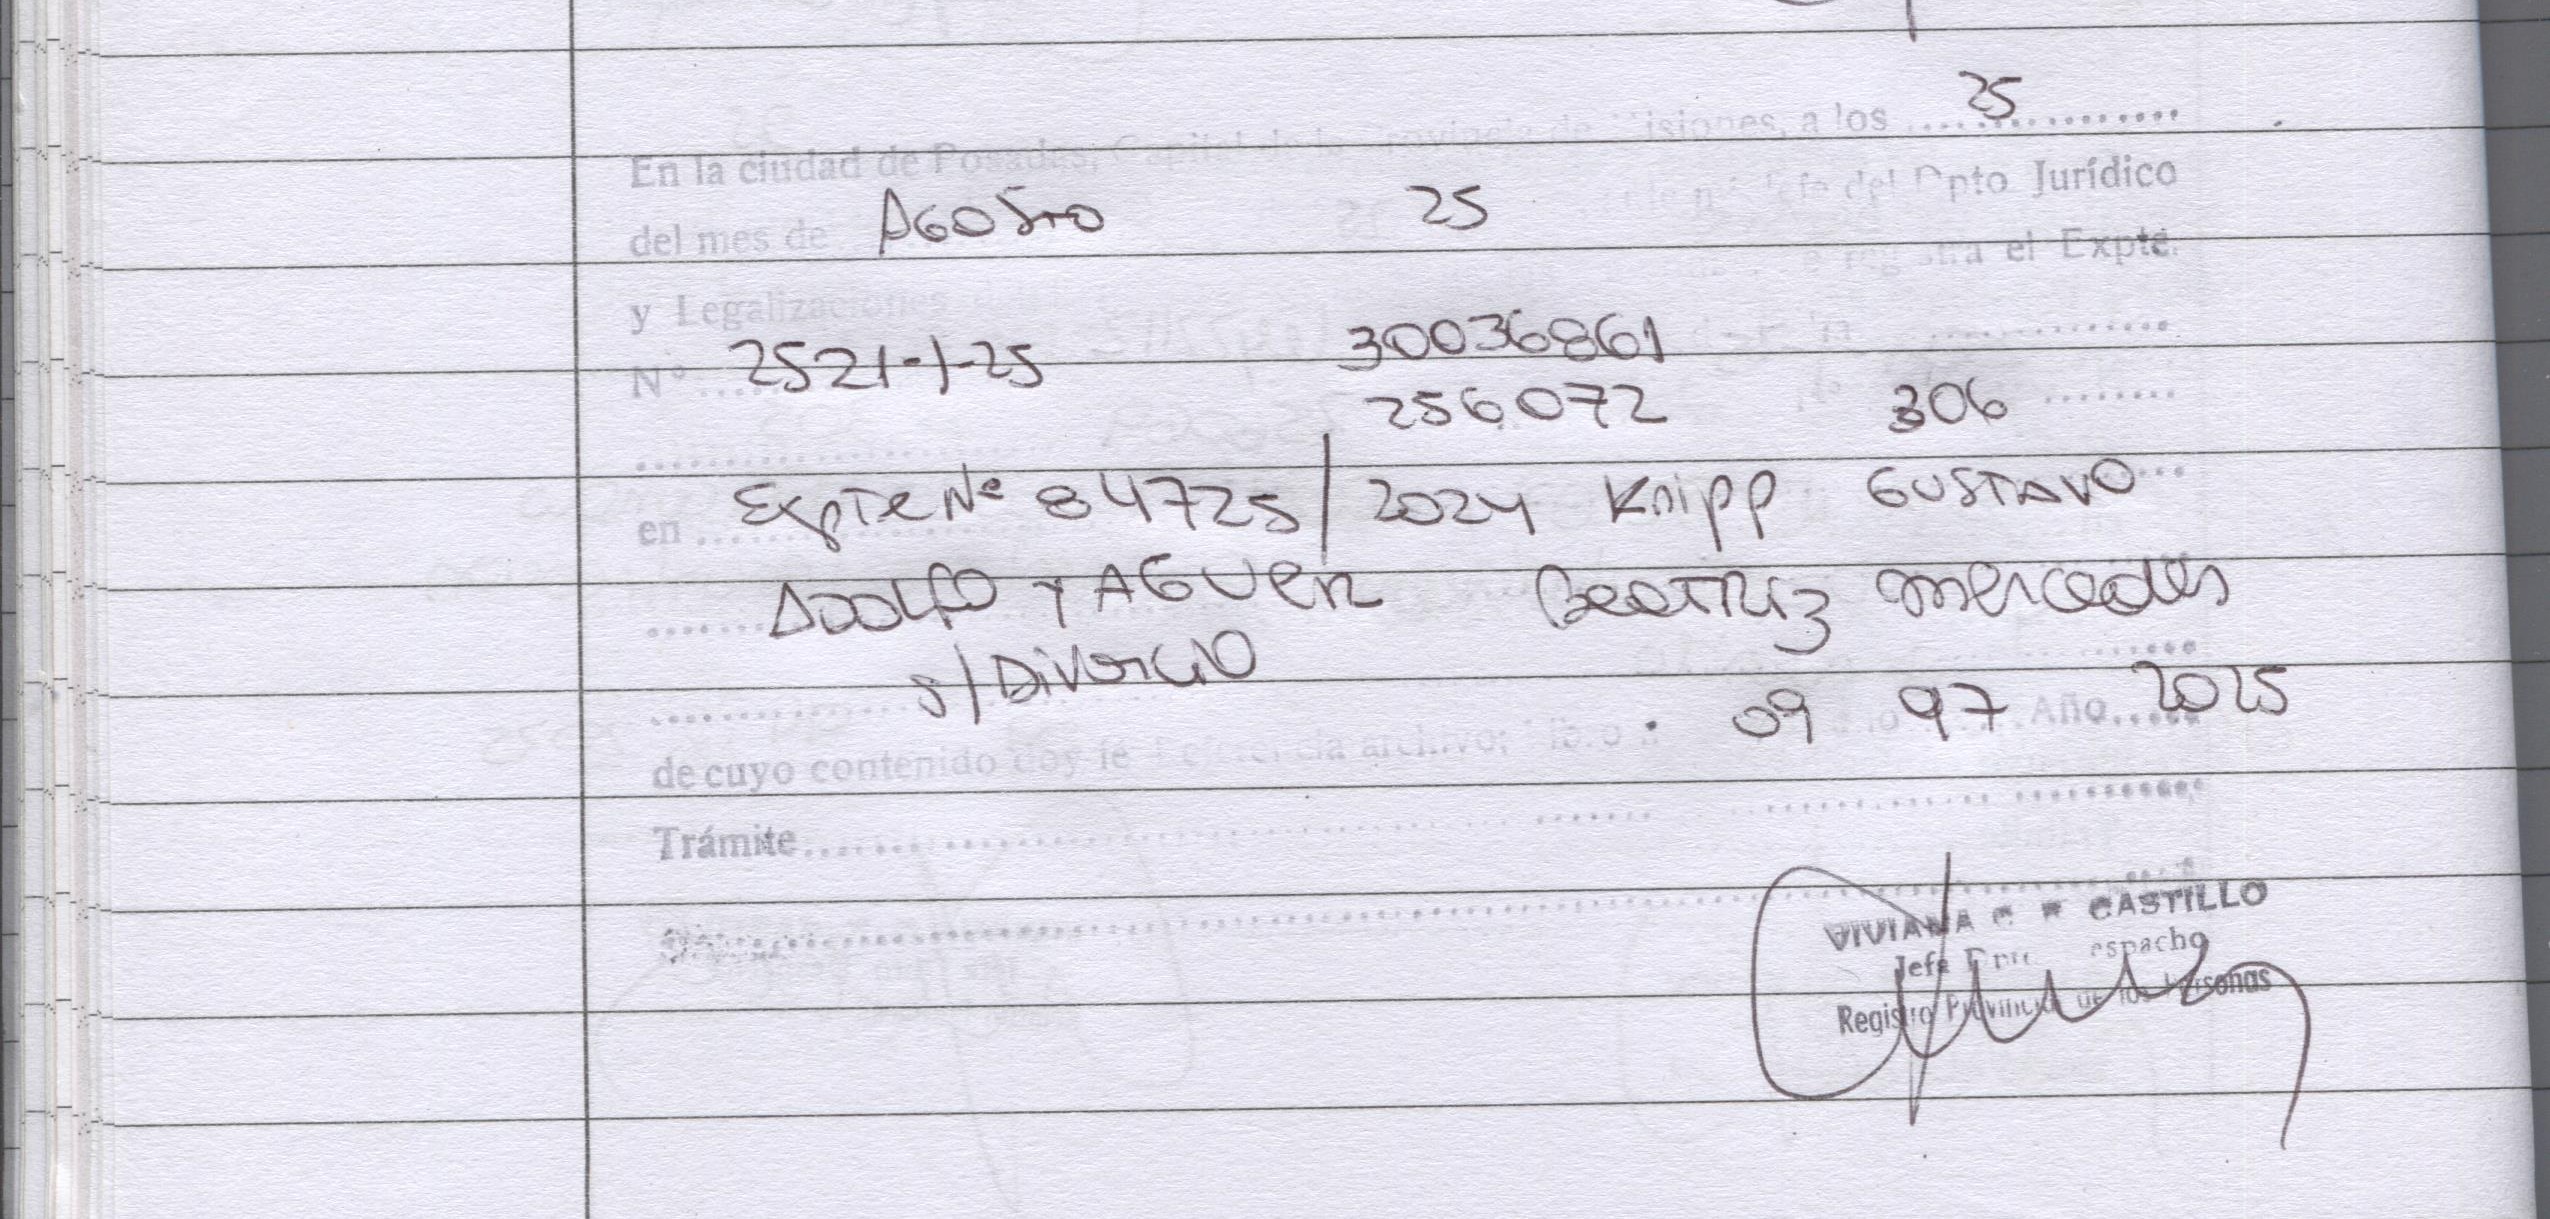 25
En la ciudad de Posadas, Capital de la Provincia de Misiones, a los ................
del mes de AGOSTO 25 Jefe del Dpto Jurídico
y Legalizaciones se registra el Expte.
Nº 2521-1-25 30036861
256072 306
en Expte Nº 84725/2024 Knipp GUSTAVO
ADOLFO Y AGUER Beatriz Mercedes
s/Divorcio
09 97 2025
de cuyo contenido doy fe Referencia archivo; Año......
Trámite
VIVIANA C CASTILLO
Jefa Despacho
Registro Provincial de las Personas